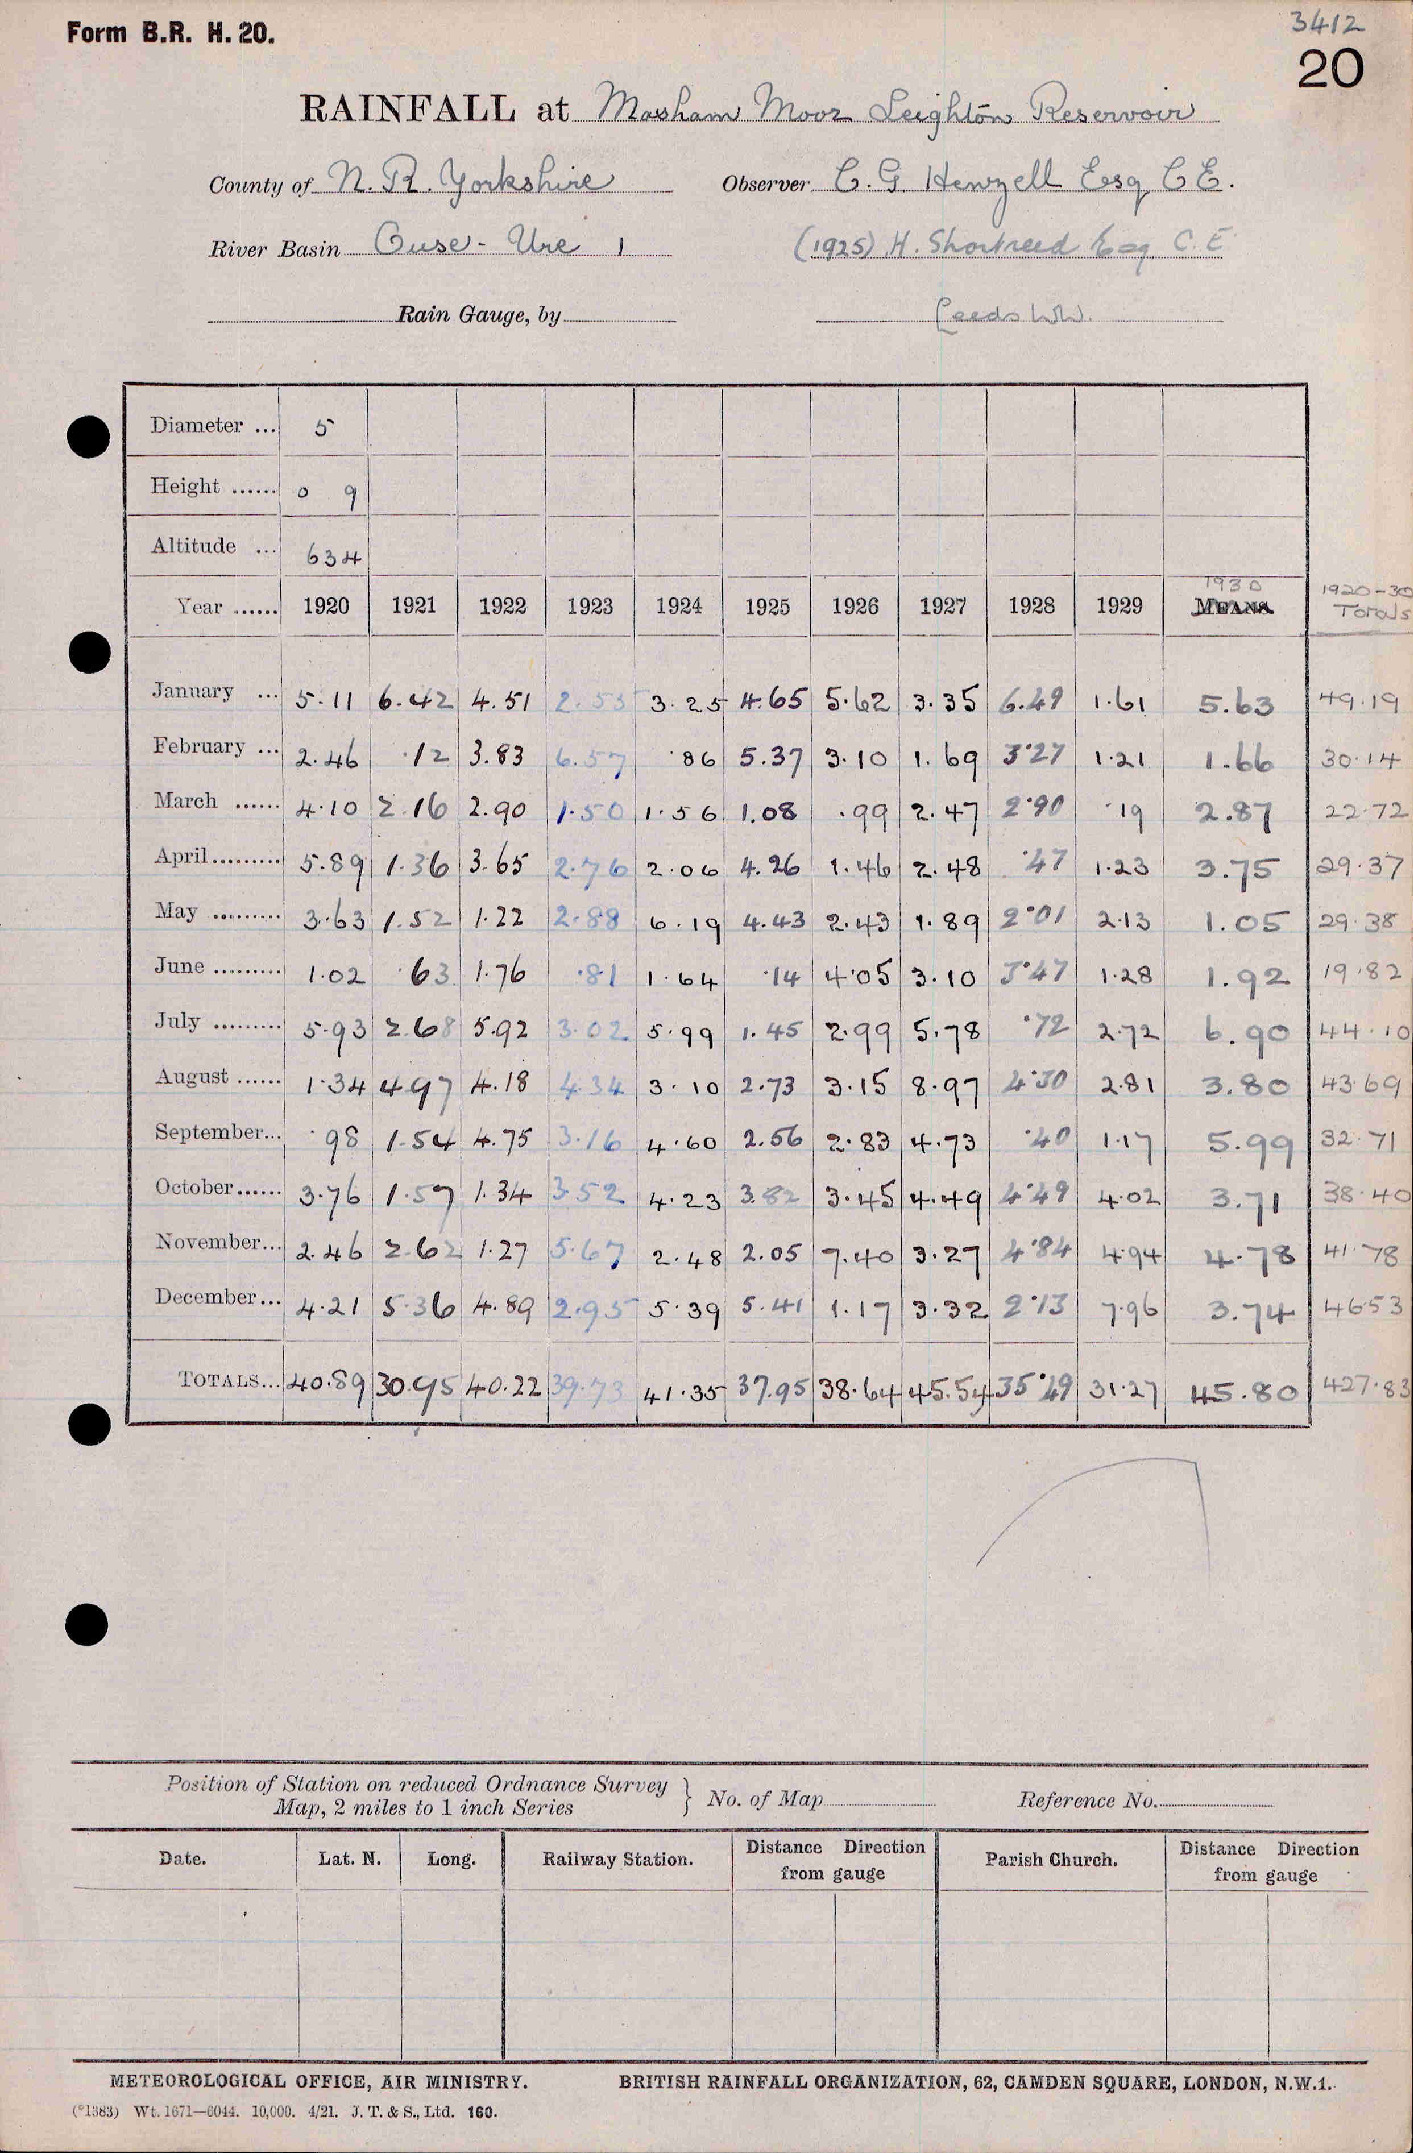 Form B.R. H. 20.
3412
20
RAINFALL at Masham Moor Leighton Reservoir
County of N. R. Yorkshire Observer C. G. Henzell Esq C E.
River Basin Ouse - Ure 1 (1925) H. Shortreed Esq. C. E.
Rain Gauge, by Leeds WW.
Diameter ... 5
Height ...... 0 9
Altitude ... 634
Year ...... 1920 1921 1922 1923 1924 1925 1926 1927 1928 1929 1930 MEANS 1920-30 Totals
January ... 5.11 6.42 4.51 2.55 3.25 4.65 5.62 3.35 6.49 1.61 5.63 49.19
February ... 2.46 .12 3.83 6.57 .86 5.37 3.10 1.69 3.27 1.21 1.66 30.14
March ...... 4.10 2.16 2.90 1.50 1.56 1.08 .99 2.47 2.90 .19 2.87 22.72
April ......... 5.89 1.36 3.65 2.76 2.06 4.26 1.46 2.48 .47 1.23 3.75 29.37
May ......... 3.63 1.52 1.22 2.88 6.19 4.43 2.43 1.89 2.01 2.13 1.05 29.38
June ......... 1.02 .63 1.76 .81 1.64 .14 4.05 3.10 3.47 1.28 1.92 19.82
July ......... 5.93 2.68 5.92 3.02 5.99 1.45 2.99 5.78 .72 2.72 6.90 44.10
August ...... 1.34 4.97 4.18 4.34 3.10 2.73 3.15 8.97 4.30 2.81 3.80 43.69
September... .98 1.54 4.75 3.16 4.60 2.56 2.83 4.73 .40 1.17 5.99 32.71
October...... 3.76 1.57 1.34 3.52 4.23 3.82 3.45 4.49 4.49 4.02 3.71 38.40
November... 2.46 2.62 1.27 5.67 2.48 2.05 7.40 3.27 4.84 4.94 4.78 41.78
December... 4.21 5.36 4.89 2.95 5.39 5.41 1.17 3.32 2.13 7.96 3.74 46.53
TOTALS... 40.89 30.95 40.22 39.73 41.35 37.95 38.64 45.54 35.49 31.27 45.80 427.83
Position of Station on reduced Ordnance Survey
Map, 2 miles to 1 inch Series } No. of Map Reference No.
Date. Lat. N. Long. Railway Station. Distance Direction from gauge Parish Church. Distance Direction from gauge
METEOROLOGICAL OFFICE, AIR MINISTRY. BRITISH RAINFALL ORGANIZATION, 62, CAMDEN SQUARE, LONDON, N.W.1.
(*1383) Wt. 1671—6044. 10,000. 4/21. J. T. & S., Ltd. 160.